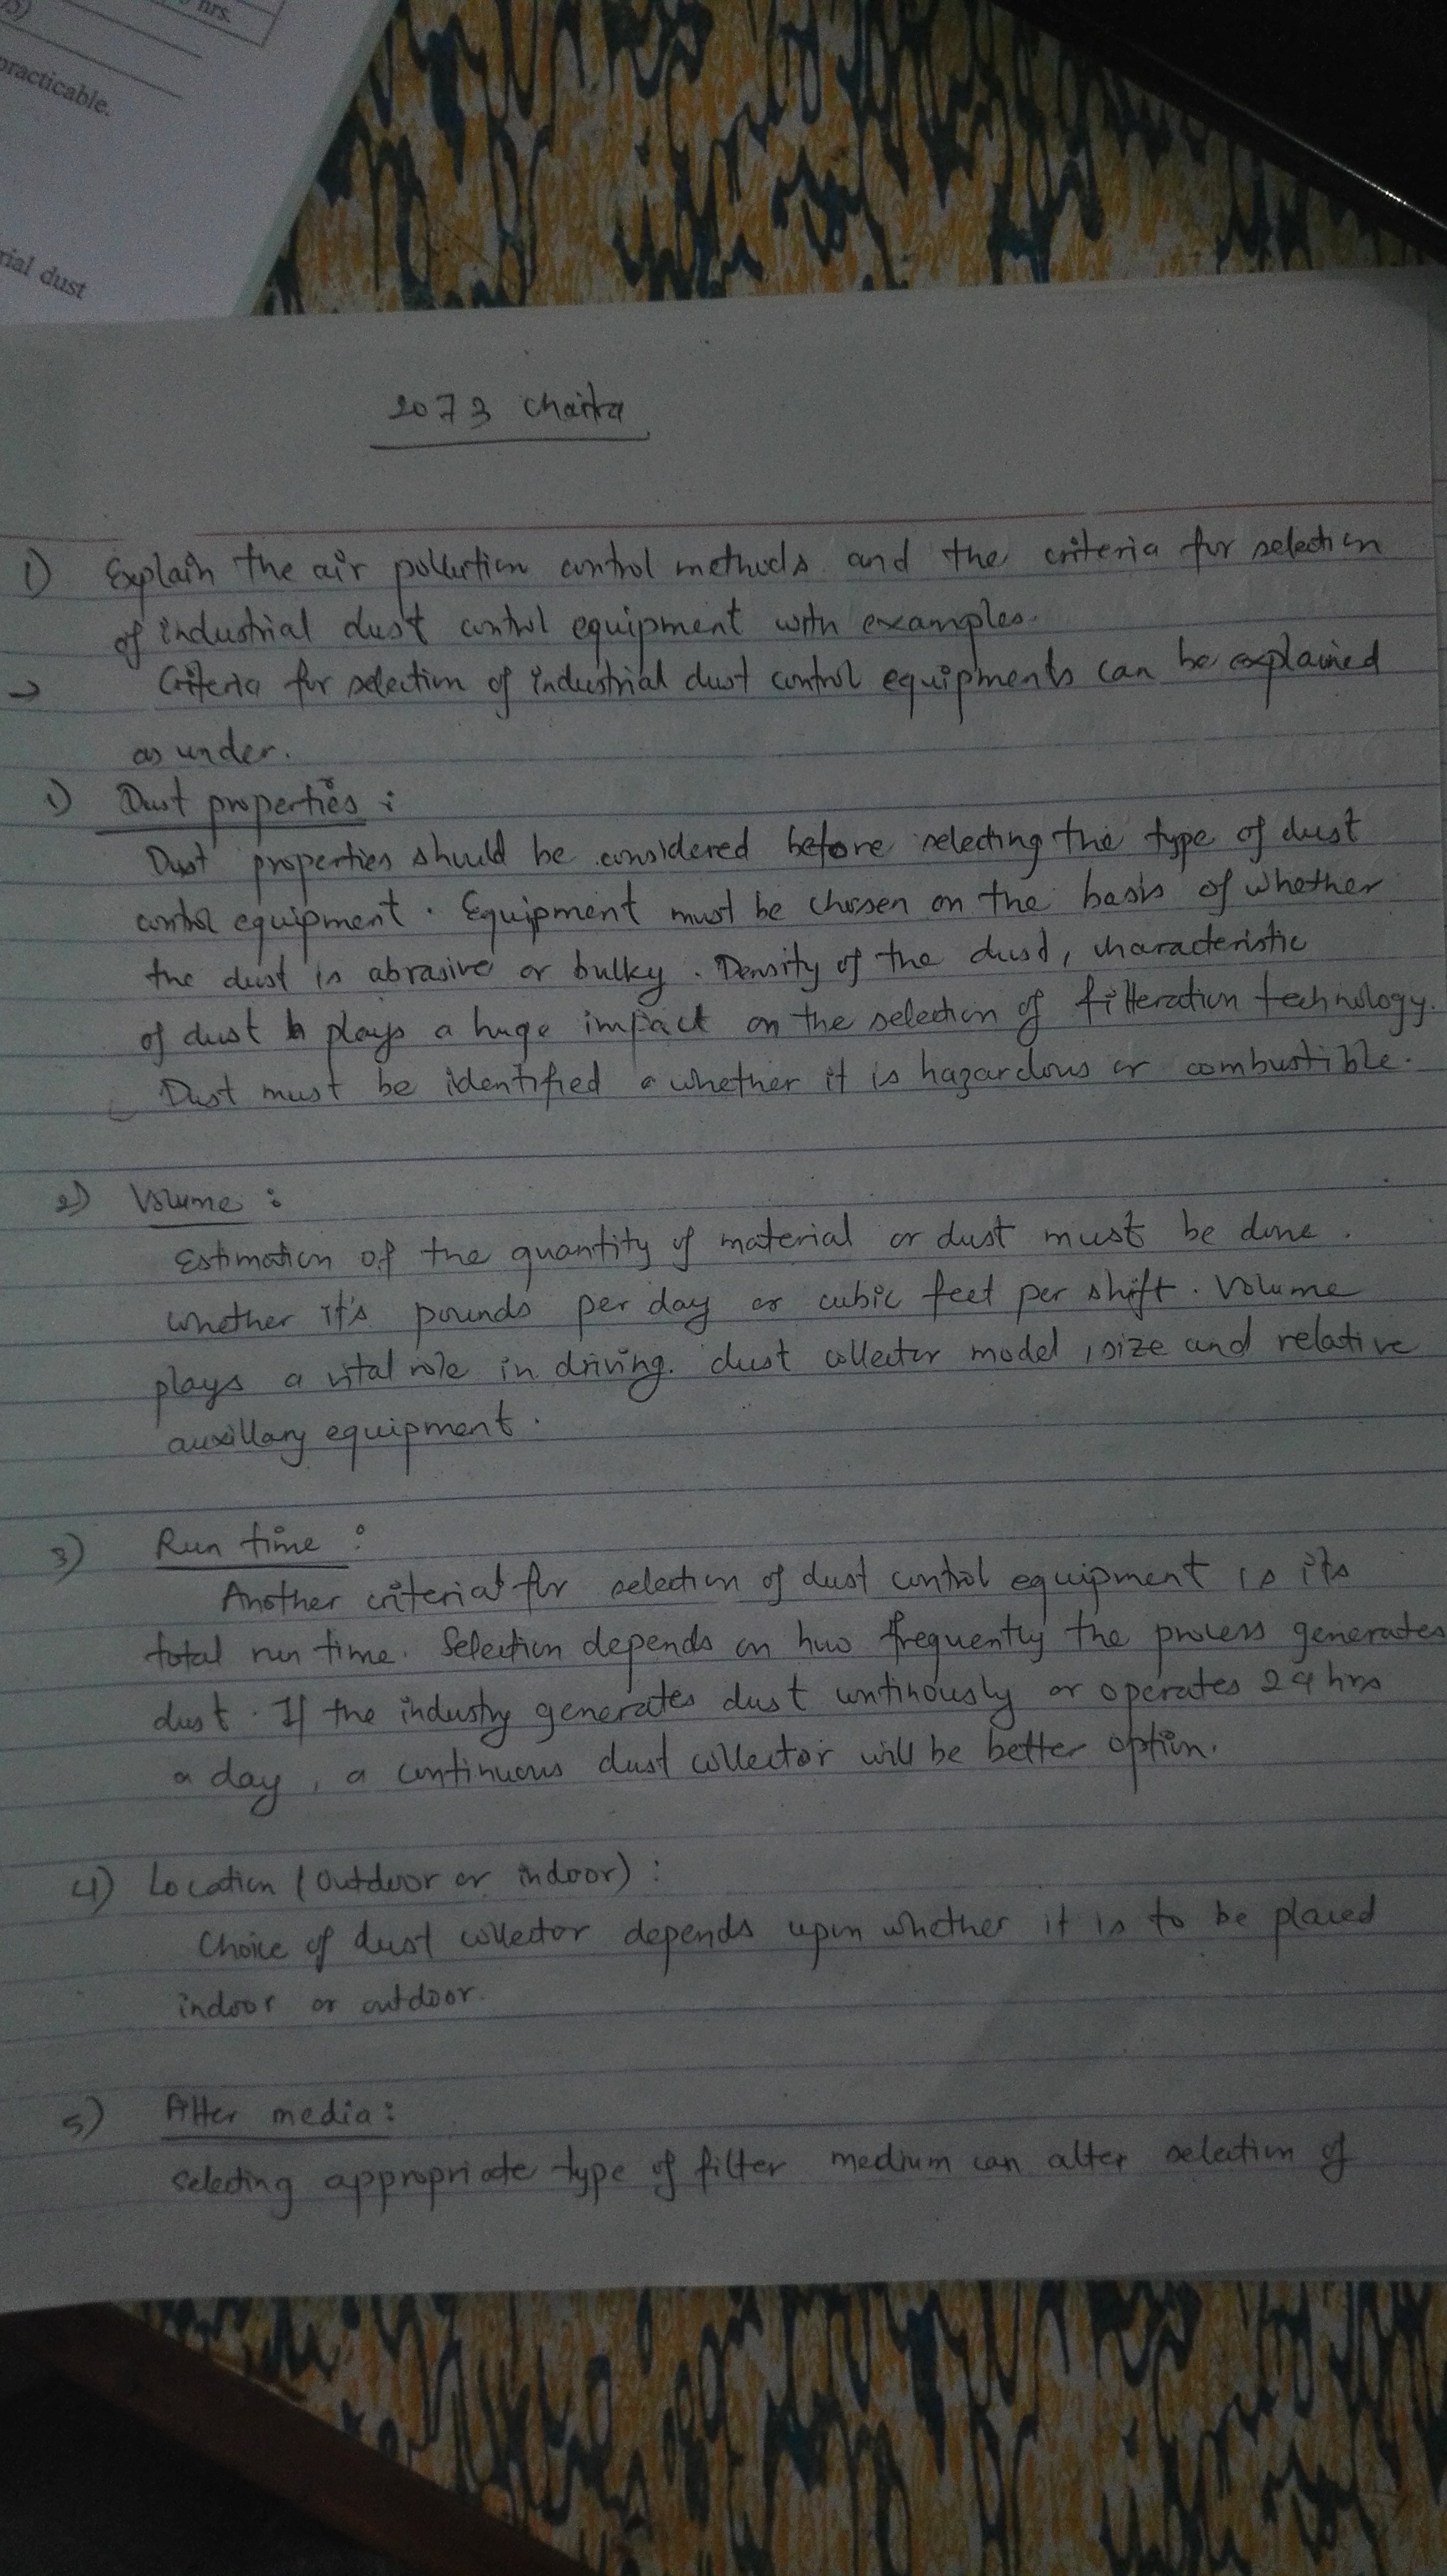 hrs.
practicable.
rial dust
2073 Chaitra
1) Explain the air pollution control methods and the criteria for selection
of industrial dust control equipment with examples.
→ Criteria for selection of industrial dust control equipments can be explained
as under.
1) Dust properties :
Dust properties should be considered before selecting the type of dust
control equipment. Equipment must be chosen on the basis of whether
the dust is abrasive or bulky. Density of the dust, characteristic
of dust plays a huge impact on the selection of filteration technology.
Dust must be identified whether it is hazardous or combustible.
2) Volume :
Estimation of the quantity of material or dust must be done.
whether it's pounds per day or cubic feet per shift. Volume
plays a vital role in driving. dust collector model, size and relative
auxillary equipment.
3) Run time :
Another criteria for selection of dust control equipment is its
total run time. Selection depends on how frequently the process generates
dust. If the industry generates dust continously or operates 24 hrs
a day, a continuous dust collector will be better option.
4) Location (Outdoor or indoor) :
Choice of dust collector depends upon whether it is to be placed
indoor or outdoor.
5) Filter media :
Selecting appropriate type of filter medium can alter selection of